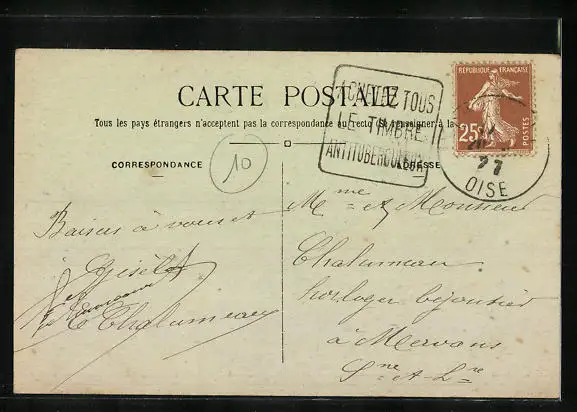 CARTE POSTALE
Tous les pays étrangers n'acceptent pas la correspondance au recto (Se renseigner à la
CORRESPONDANCE
ADRESSE
10
ACHETEZ TOUS
LE TIMBRE
ANTITUBERCULEUX
RÉPUBLIQUE FRANÇAISE
25c
POSTES
27
OISE
Baisers à vous et
Gisèle
E Chalumeau
Mme et Monsieur
Chalumeau
horloger bijoutier
à Mervans
Sne et Lre